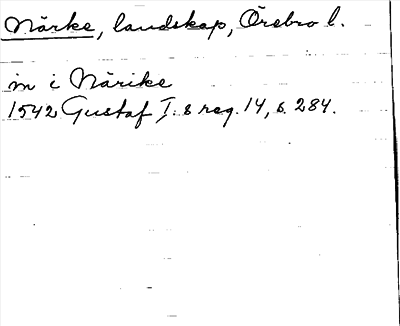 Närke, landskap, Örebro l.
in i Närike
1542 Gustaf I:s reg. 14, s. 284.